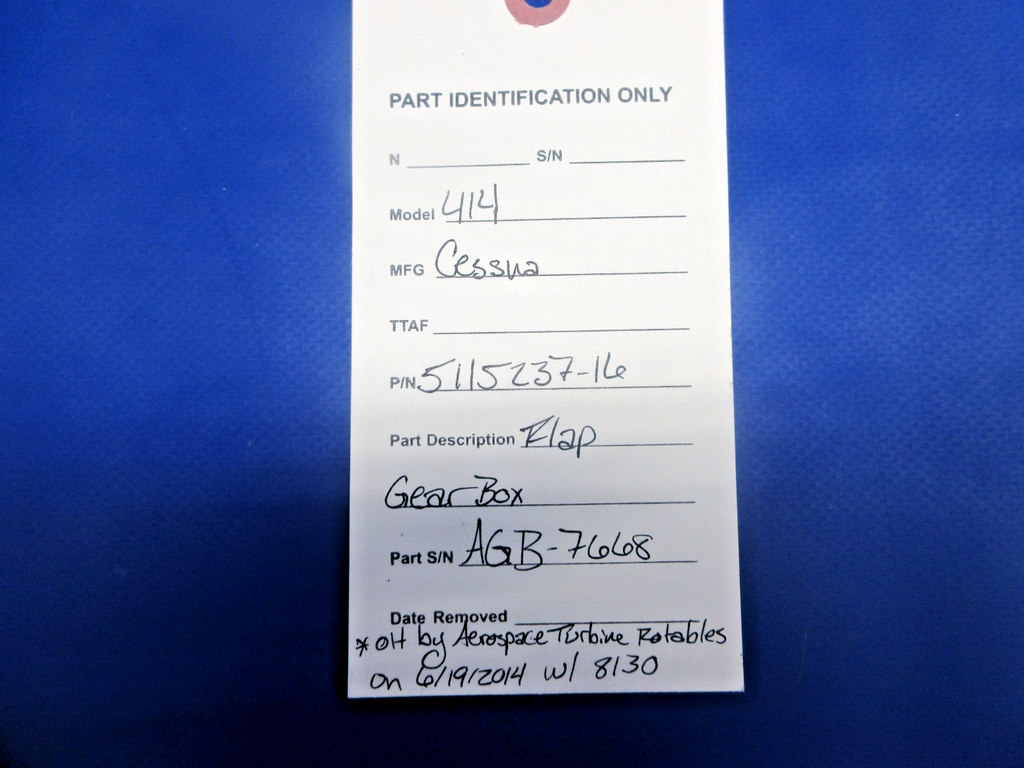 PART IDENTIFICATION ONLY
N S/N
Model 414
MFG Cessna
TTAF
P/N 5115237-16
Part Description Flap
Gear Box
Part S/N AGB-7668
Date Removed
* OH by Aerospace Turbine Rotables
on 6/19/2014 w/ 8130